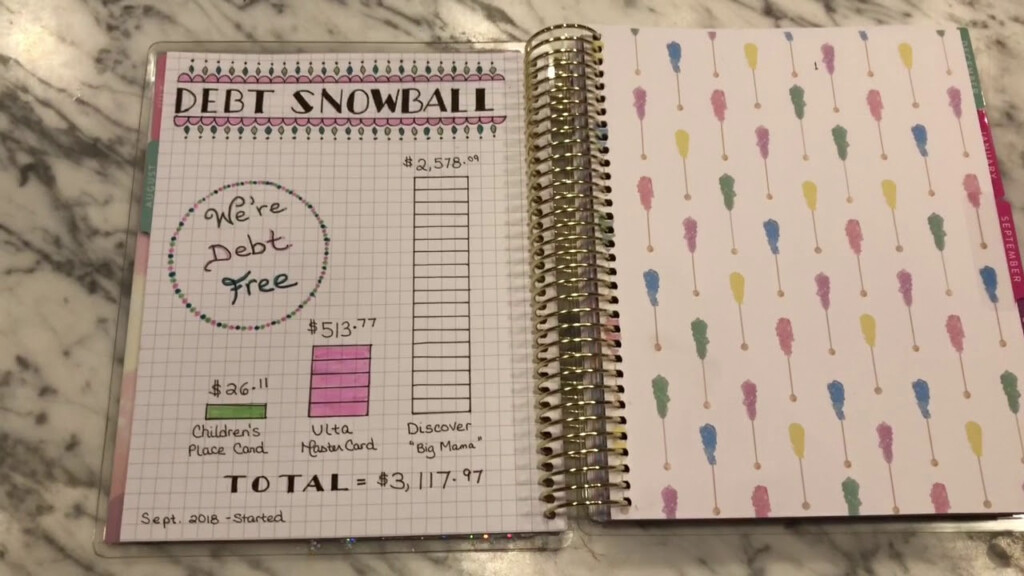 DEBT SNOWBALL
We're
Debt
Free
$2,578.09
$513.77
$26.11
Children's
Place Card
Ulta
MasterCard
Discover
"Big Mama"
TOTAL = $3,117.97
Sept. 2018 - Started
1
SEPTEMBER
AUGUST